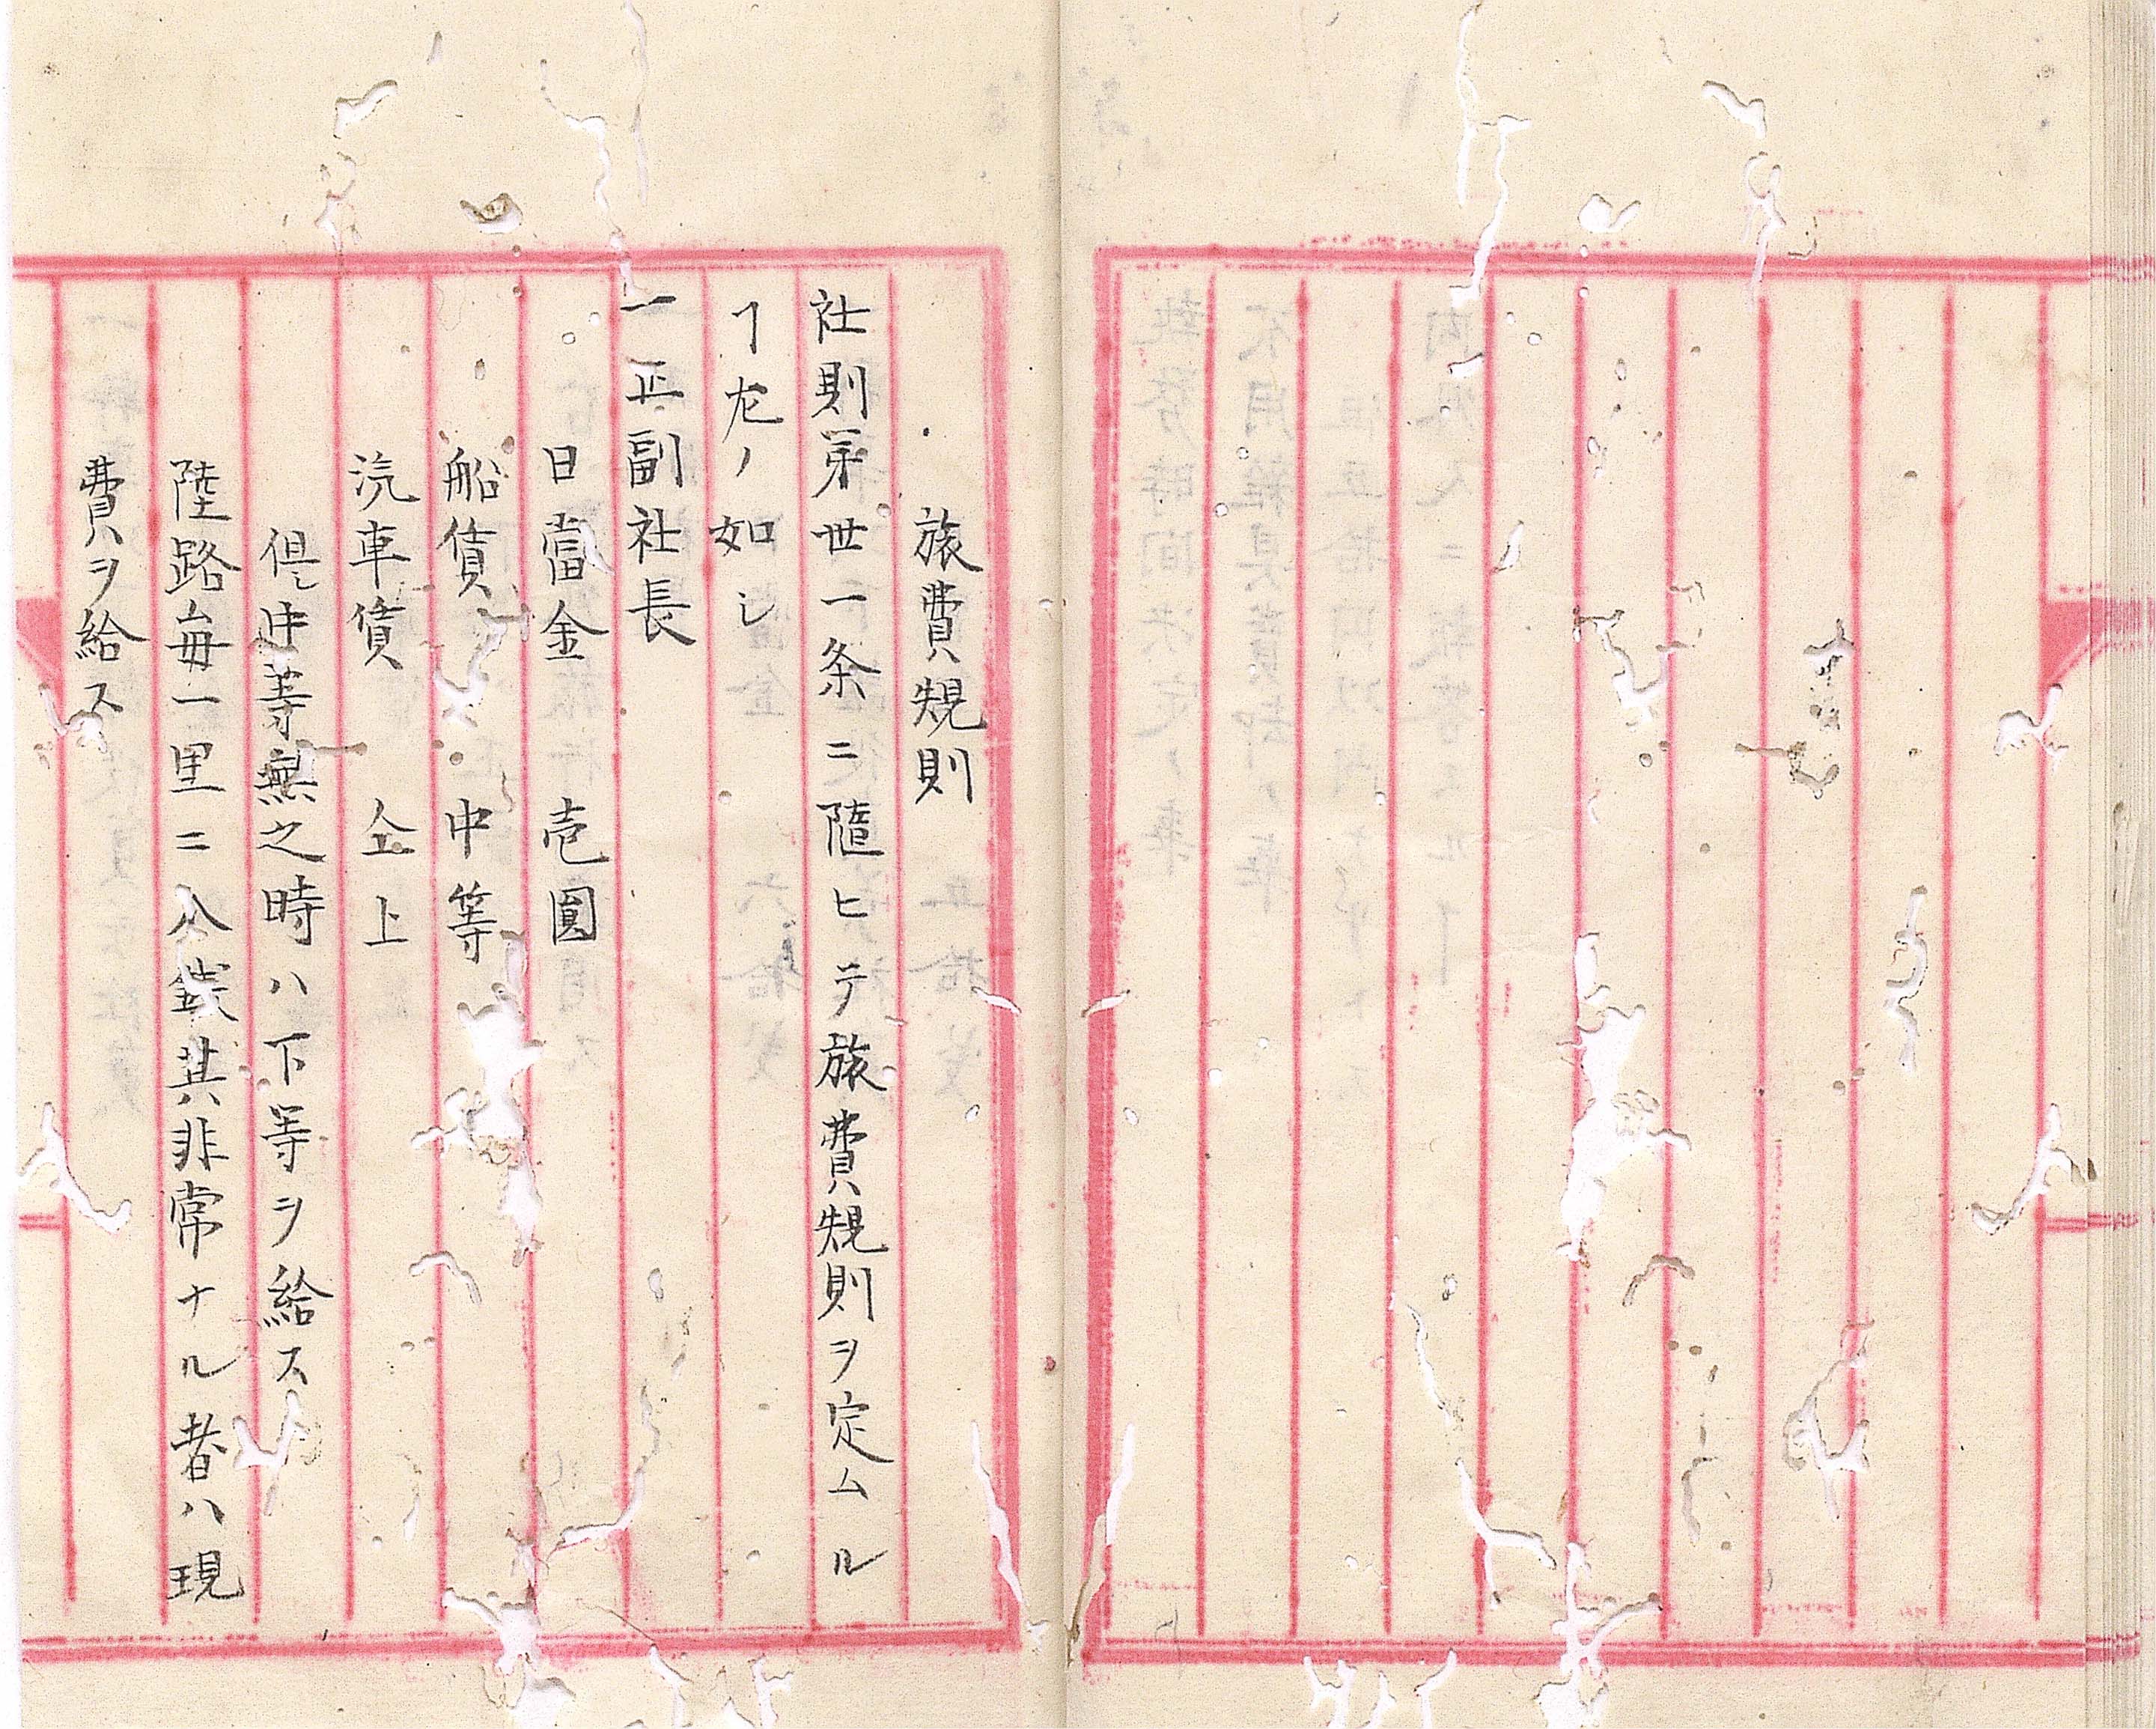 旅費規則
社則第卅一条ニ随ヒテ旅費規則ヲ定ムル
ヿ左ノ如シ
一正副社長
日當金 壱圓
船賃 中等
汽車賃 仝上
但シ中等無之時ハ下等ヲ給ス
陸路毎一里ニ八銭其非常ナル者ハ現
費ヲ給ス